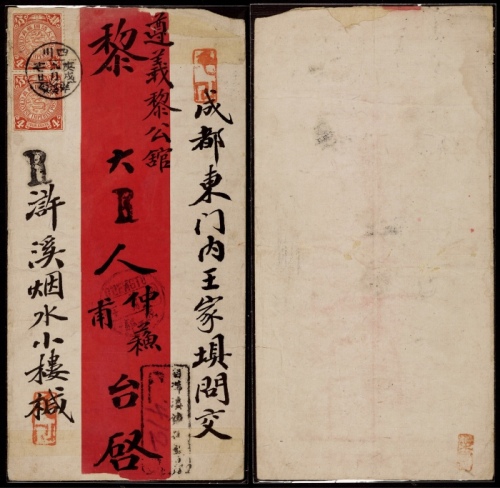 成都東门内王家垻問交
遵義黎公舘
黎大人仲蘓甫台啓
R
R
滸溪烟水小樓椷
四川